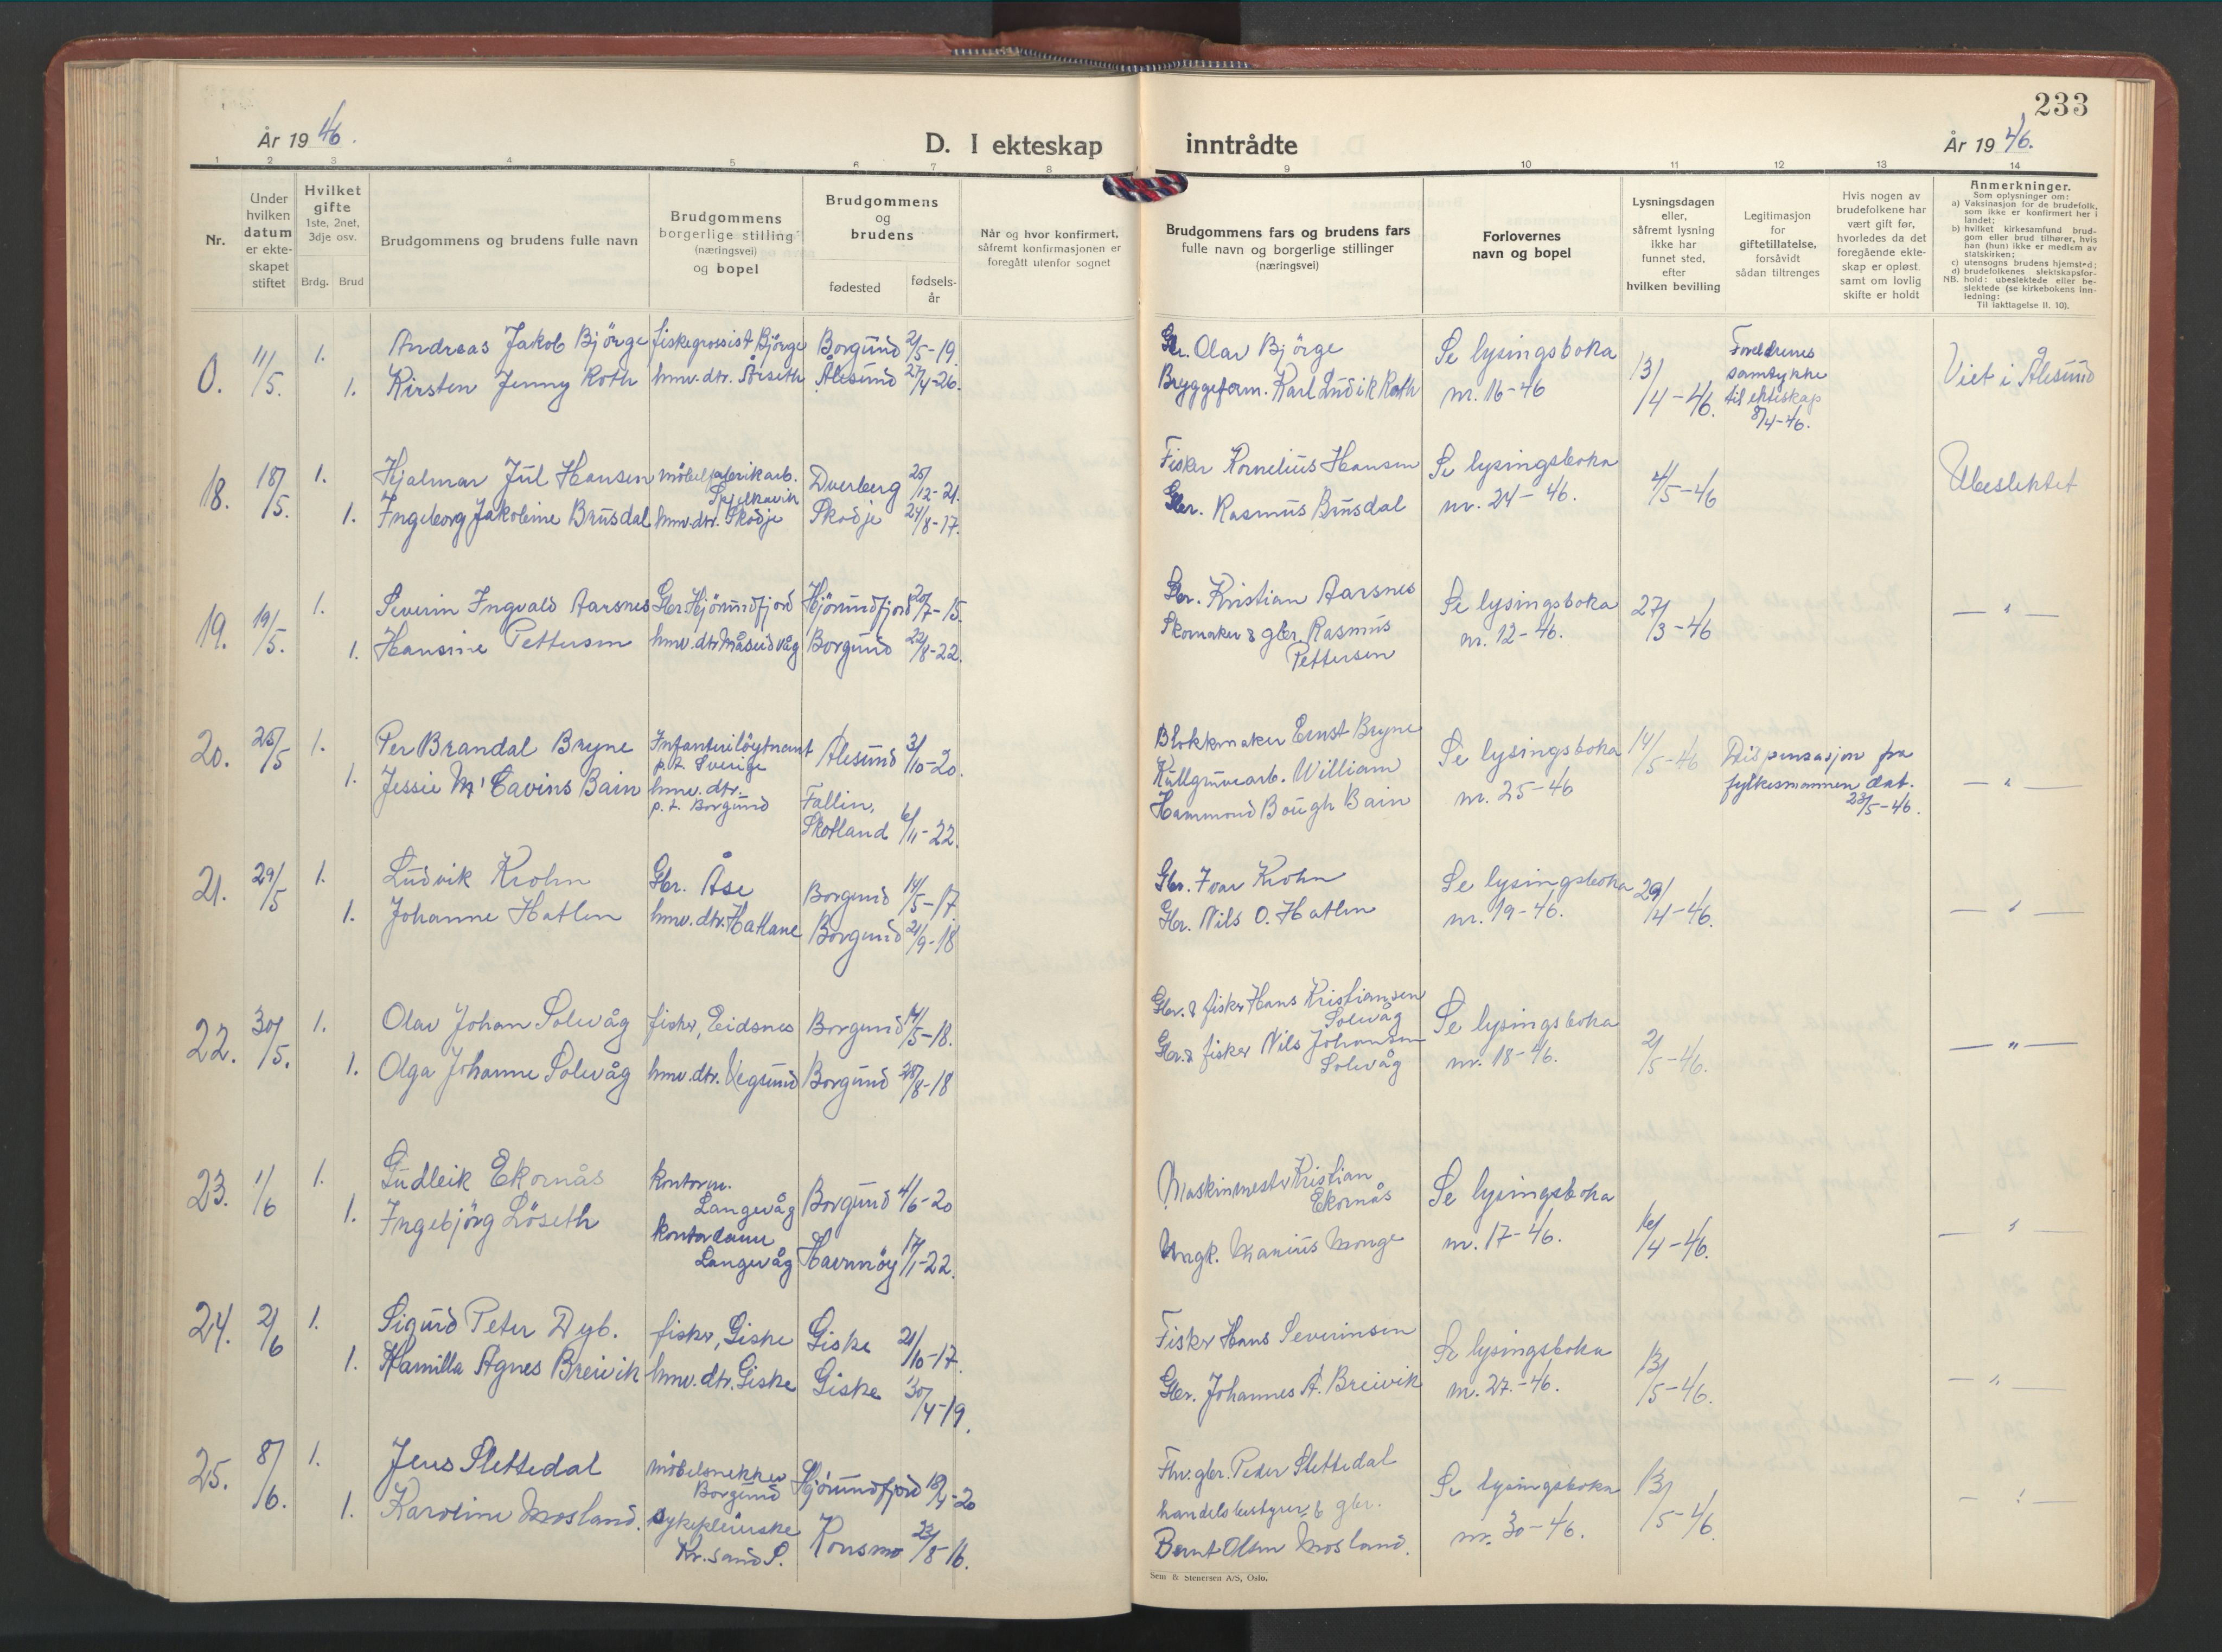 233
År 1946.
D. I ekteskap inntrådte
År 1946.
1 2 3 4 5 6 7 8 9 10 11 12 13 14
Nr.
Under hvilken datum er ekteskapet stiftet
Hvilket gifte 1ste, 2net, 3dje osv.
Brdg. Brud
Brudgommens og brudens fulle navn
Brudgommens borgerlige stilling (næringsvei) og bopel
Brudgommens og brudens
fødested
fødselsår
Når og hvor konfirmert, såfremt konfirmasjonen er foregått utenfor sognet
Brudgommens fars og brudens fars fulle navn og borgerlige stillinger (næringsvei)
Forlovernes navn og bopel
Lysningsdagen eller, såfremt lysning ikke har funnet sted, efter hvilken bevilling
Legitimasjon for giftetillatelse, forsåvidt sådan tiltrenges
Hvis nogen av brudefolkene har vært gift før, hvorledes da det foregående ekteskap er opløst samt om lovlig skifte er holdt
Anmerkninger.
Som oplysninger om:
a) Vaksinasjon for de brudefolk, som ikke er konfirmert her i landet;
b) hvilket kirkesamfund brudgom eller brud tilhører, hvis han (hun) ikke er medlem av statskirken;
c) utensogns brudens hjemsted;
d) brudefolkenes slektskapsforhold: ubeslektede eller beslektede (se kirkebokens Innledning:
NB. Til iakttagelse II. 10).
0. 11/5. 1. Andreas Jakob Bjørge fiskegrossist Bjørge Borgund 2/5-19. Gbr. Olav Bjørge Se lysingsboka 13/4-46. Foreldrenes samtykke til ekteskap 8/4-46. Viet i Ålesund
1. Kirsten Jenny Roth hmv. dtr. Årseth Ålesund 27/4-26. Bryggeform. Karl Ludvik Roth nr. 16-46
18. 18/5. 1. Hjalmar Jul Hansen møbelfabrikarb. Spjelkavik Dverberg 25/12-21. Fisker Kornelius Hansen Se lysingsboka 4/5-46 Ubeslektet
1. Ingeborg Jakobine Brusdal hmv. dtr. Skodje Skodje 24/8-17. Gbr. Rasmus Brusdal nr. 24-46.
19. 19/5. 1. Severin Ingvald Aarsnes Gbr. Hjørundfjord Hjørundfjord 20/7-15. Gbr. Kristian Aarsnes Se lysingsboka 27/3-46 — " —
1. Hansine Pettersen hmv. dtr. Måseidvåg Borgund 22/8-22. Skomaker & gbr. Rasmus Pettersen nr. 12-46.
20. 25/5 1. Per Brandal Bryne Infanteriløytnant p.t. Sverige Ålesund 3/10-20. Blokkmaker Ernst Bryne Se lysingsboka 14/5-46 Dispensasjon fra fylkesmannen dat. 23/5-46. — " —
1. Jessie Mc Cavins Bain hmv. dtr. p.t. Borgund Fallin, Skotland 6/11-22. Kullgruvearb. William Hammond Bough Bain nr. 25-46
21. 29/5 1. Ludvik Krohn Gbr. Åse Borgund 14/5-17 Gbr. Ivar Krohn Se lysingsboka 29/4-46. — " —
1. Johanne Hatlen hmv. dtr. Hatlane Borgund 21/9-18 Gbr. Nils O. Hatlen nr. 19-46.
22. 30/5. 1. Olav Johan Solevåg fisker, Eidsnes Borgund 14/5-18. Gbr. & fisker Hans Kristiansen Solevåg Se lysingsboka 2/5-46. — " —
1. Olga Johanne Solevåg hmv. dtr. Vegsund Borgund 28/8-18 Gbr. & fisker Nils Johansen Solevåg nr. 18-46.
23. 1/6 1. Gudleik Ekornås kontorm. Langevåg Borgund 4/6-20 Maskinmester Kristian Ekornås Se lysingsboka 16/4-46. — " —
1. Ingebjørg Løseth kontordame Langevåg Havnnøy 17/1-22. Ungk. Marius Monge nr. 17-46.
24. 2/6 1. Sigurd Peter Dyb. fisker, Giske Giske 21/10-17. Fisker Hans Severinsen Se lysingsboka 13/5-46. — " —
1. Kamilla Agnes Breivik hmv. dtr. Giske Giske 30/4-19. Gbr. Johannes A. Breivik nr. 27.-46.
25. 8/6. 1. Jens Slettedal møbelsnekker Borgund Hjørundfjord 18/4-20 Fhv. gbr. Peder Slettedal Se lysingsboka 13/5-46. — " —
1. Karoline Mosland. sykepleierske Kr. sand S. Konsmo 23/8-16. handelsbestyrer & gbr. Bernt Olsen Mosland. nr. 30-46.
Sem & Stenersen A/S, Oslo.